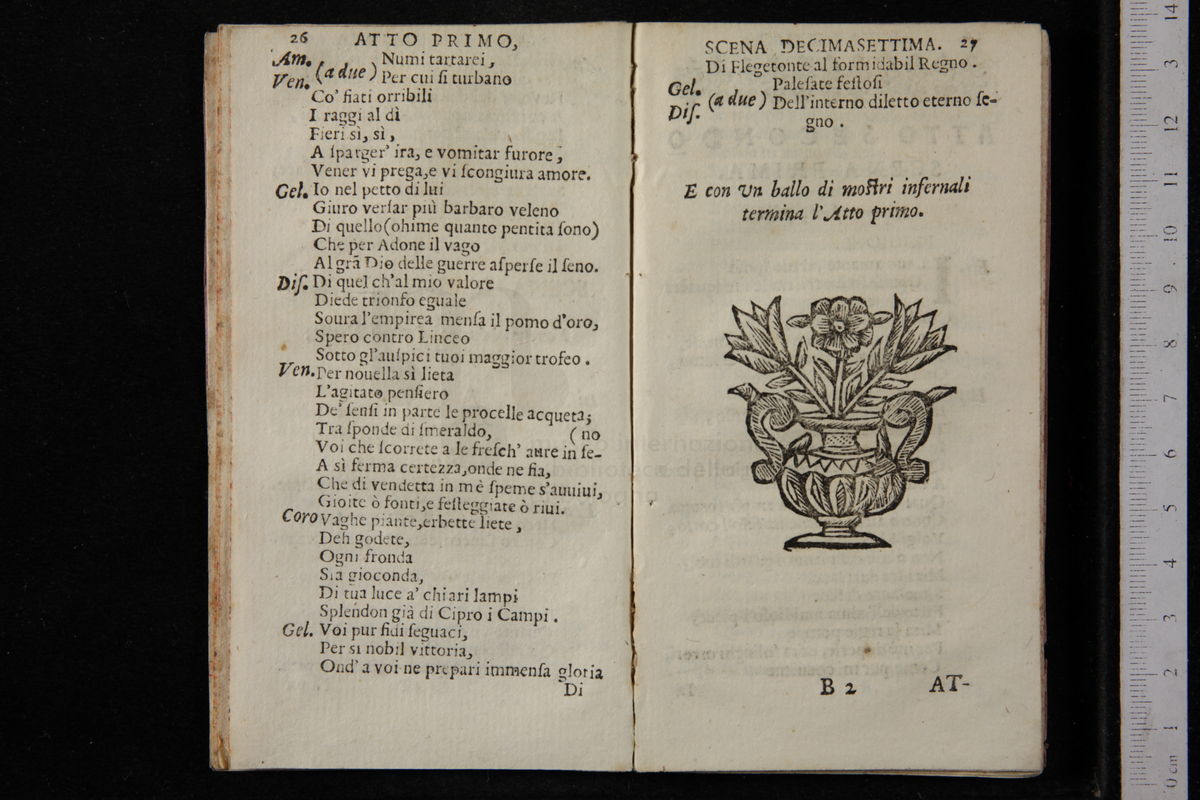 26 ATTO PRIMO,
Am. Ven. (a due) Numi tartarei,
Per cui ſi turbano
Co' fiati orribili
I raggi al dì
Fieri sì, sì,
A ſparger' ira, e vomitar furore,
Vener vi prega,e vi ſcongiura amore.
Gel. Io nel petto di lui
Giuro verſar più barbaro veleno
Di quello(ohime quanto pentita ſono)
Che per Adone il vago
Al grã Dio delle guerre aſperſe il ſeno.
Diſ. Di quel ch'al mio valore
Diede trionfo eguale
Soura l'empirea menſa il pomo d'oro,
Spero contro Linceo
Sotto gl'auſpici tuoi maggior trofeo.
Ven. Per nouella sì lieta
L'agitato penſiero
De' ſenſi in parte le procelle acqueta;
Tra ſponde di ſmeraldo, (no
Voi che ſcorrete a le freſch' aure in ſe-
A sì ferma certezza,onde ne ſia,
Che di vendetta in mè ſpeme s'auuiui,
Gioite ò fonti,e feſteggiate ò riui.
Coro Vaghe piante,erbette liete,
Deh godete,
Ogni fronda
Sia gioconda,
Di tua luce a' chiari lampi
Splendon già di Cipro i Campi.
Gel. Voi pur fidi ſeguaci,
Per si nobil vittoria,
Ond' a voi ne prepari immenſa gloria
Di
SCENA DECIMASETTIMA. 27
Di Flegetonte al formidabil Regno.
Gel. Diſ. (a due) Paleſate feſtoſi
Dell'interno diletto eterno ſe-
gno.
E con un ballo di moſtri infernali
termina l'Atto primo.
B 2 AT-
14
13
12
11
10
9
8
7
6
5
4
3
2
1
0 cm